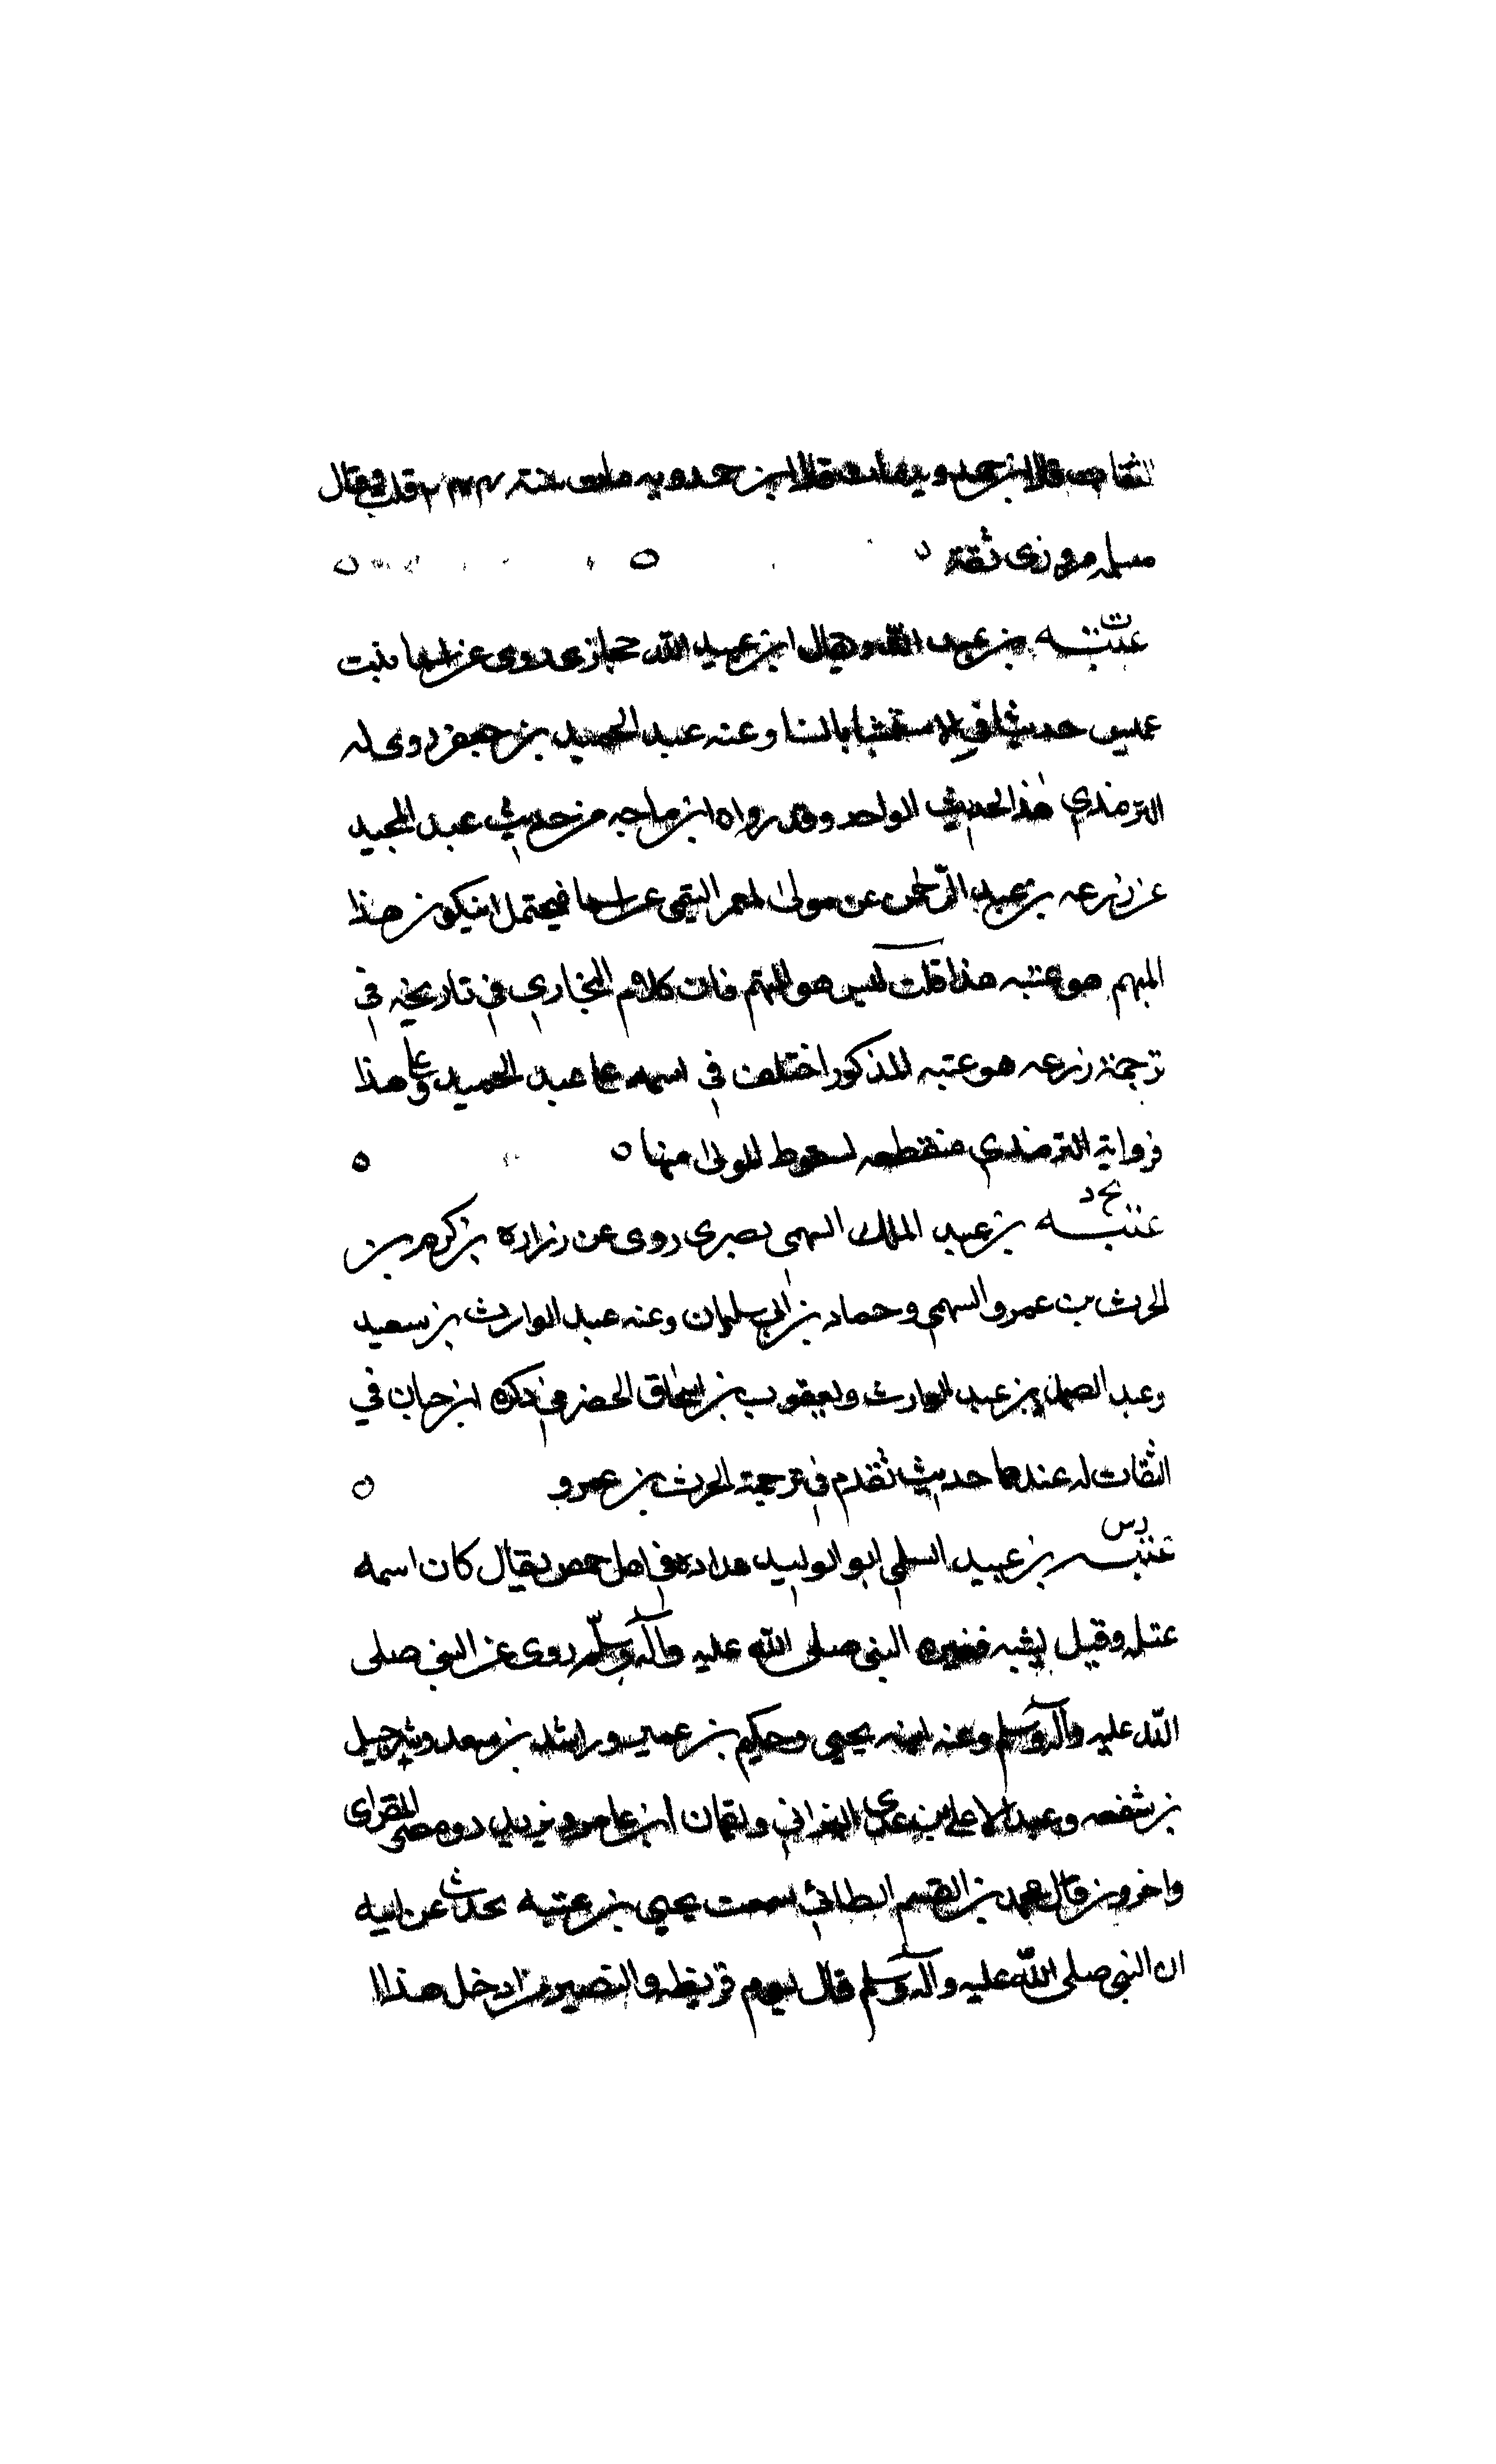 الثقات قال ابن حمدويه مات قال ابن حمدويه مات سنة ٢٤٤ قلت وقال
مسلمه مروزى ثقة ٥ ٥ ٥
ت
عتبه بن عبد الله ويقال ابن عبيد الله حجازى روى عن اسما بنت
عميس حديثا في الاستمشا بالسنا وعنه عبد الحميد بن جعفر روى له
الترمذي هذا الحديث الواحد وقد رواه ابن ماجه من حديث عبد الحميد
عن زرعه بن عبد الرحمن عن مولى لمعمر التيمى عن اسما فيحتمل ان يكون هذا
المبهم هو عتبه هذا قلت ليس هو المبهم فان كلام البخاري في تاريخه في
ترجمة زرعه هو عتبه المذكور اختلف في اسمه على عبد الحميد وعلى هذا
فرواية الترمذي منقطعه لسقوط المولى منها ٥ ٥
بخ د
عتبه بن عبد الملك السهمى بصرى روى عن زراره بن كريم بن
الحرث بن عمرو السهمي وحماد بن ابي سليمان وعنه عبد الوارث بن سعيد
وعبد الصمد بن عبد الوارث ويعقوب بن اسحاق الحضرمي ذكره ابن حبان في
الثقات له عندهما حديث تقدم في ترجمة الحرث بن عمرو ٥
دس
عتبه بن عبيد السلمي ابو الوليد عداده في اهل حمص يقال كان اسمه
عتله وقيل نشبه فغيره النبى صلى الله عليه وآله وسلم روى عن النبى صلى
الله عليه وآله وسلم وعنه ابنه يحيى وحكيم بن عمير وراشد بن سعد وشرحبيل
بن شفعه وعبد الاعلى بن عدى البهرانى ولقمان ابن عامر ويزيد ذو مصر المقراى
واخرون قال محمد بن القسم الطائي سمعت يحيى بن عتبه يحدث عن ابيه
ان النبى صلى الله عليه وآله وسلم قال يوم قريظه والنضير من ادخل هذا